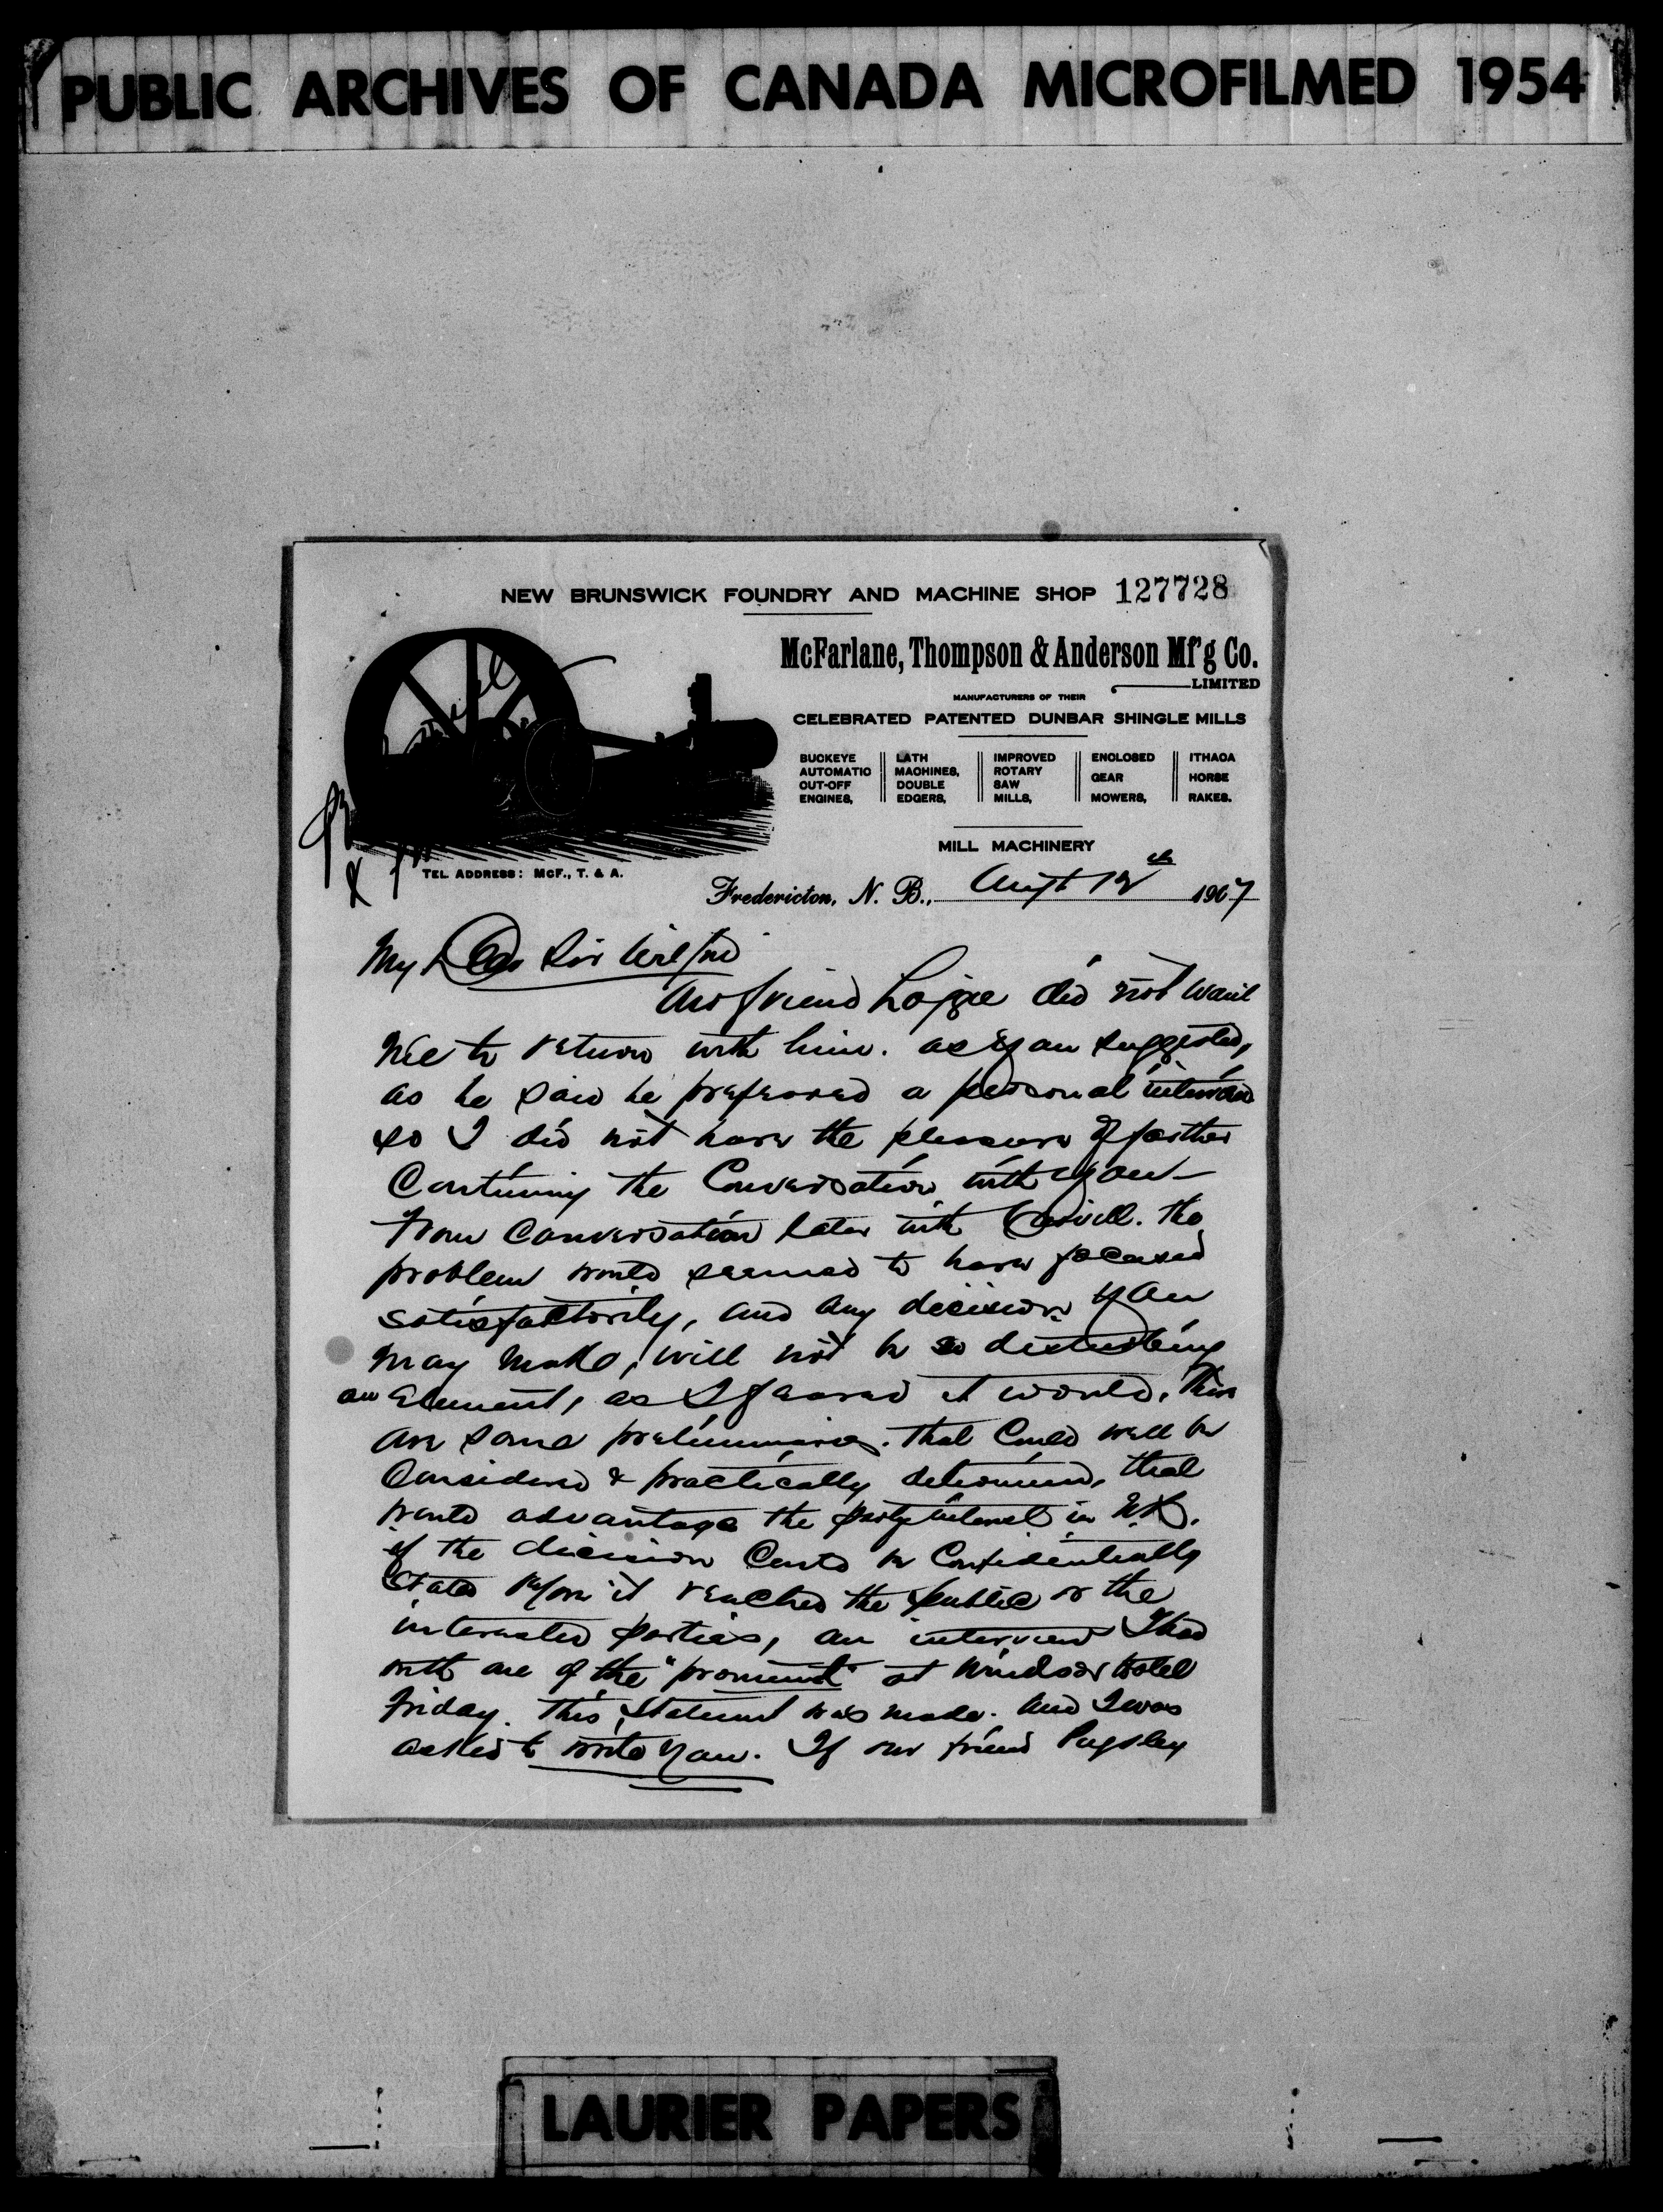 PUBLIC ARCHIVES OF CANADA MICROFILMED 1954
NEW BRUNSWICK FOUNDRY AND MACHINE SHOP 127728
McFarlane, Thompson & Anderson Mf'g Co.
LIMITED
MANUFACTURERS OF THEIR
CELEBRATED PATENTED DUNBAR SHINGLE MILLS
BUCKEYE AUTOMATIC CUT-OFF ENGINES,
LATH MACHINES, DOUBLE EDGERS,
IMPROVED ROTARY SAW MILLS,
ENCLOSED GEAR MOWERS,
ITHACA HORSE RAKES.
MILL MACHINERY
TEL. ADDRESS: McF., T. & A.
Fredericton, N. B., Augt 12th 1907
My Dear Sir Wilfrid
Our friend Logie did not want
me to return with him. as you suggested,
as he said he preferred a personal interview
so I did not have the pleasure of farther
Continuing the Conversation with you—
From Conversation later with the
problem would seemed to have focused
satisfactorily, and any decision you
may make, will not be so disturbing
an Element, as I feared it would. there
are some preliminaries. that Could well be
Considered & practically determined, that
would advantage the party interest in N.B.
if the decision Could be Confidentially
Stated before it reached the public or the
interested parties, an interview I had
with one of the "prominent" at Windsor Hotel
Friday. this statement was made. and I was
asked to write you. If our friend Pugsley
LAURIER PAPERS